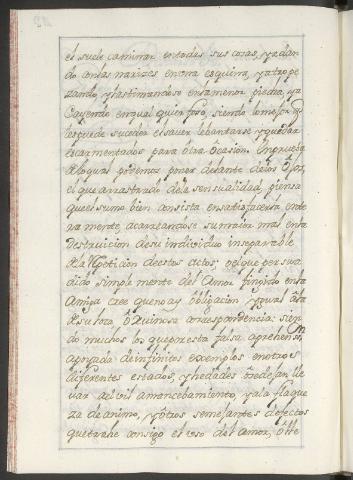 el suele caminar en todas sus cosas, ya dan
do con las narizes en una esquina, ya trope
zando, y lastimandose en la menor piedra, ya
cayendo en qual quier foso, siendo lo mejor q.
les puede suceder el saver lebantarse, y quedar
escarmentados para otra ocasion. En prueba
de lo qual podemos poner delante de los ojos,
el que arrastrado de la sensualidad, piensa
que el sumo bien consista en satisfacerla ente
ra mente, acarreandose su maior mas en la
Destruicion de su individuo inseparable
de la Repeticion de estos actos; o el que persua
dido simplemente del Amor fingido en la
Amiga cree que no ay obligacion igual a la
de su loca, correspondencia: sien
do muchos los que presta falsa aprehension
apoyado de infinitos exemplos en otros
diferentes estados, y hedades se dejan lle
var al vil amancebamiento, y a la flaque
za de animo, y otros semejantes defectos
que trahe consigo el uso del amor, o de